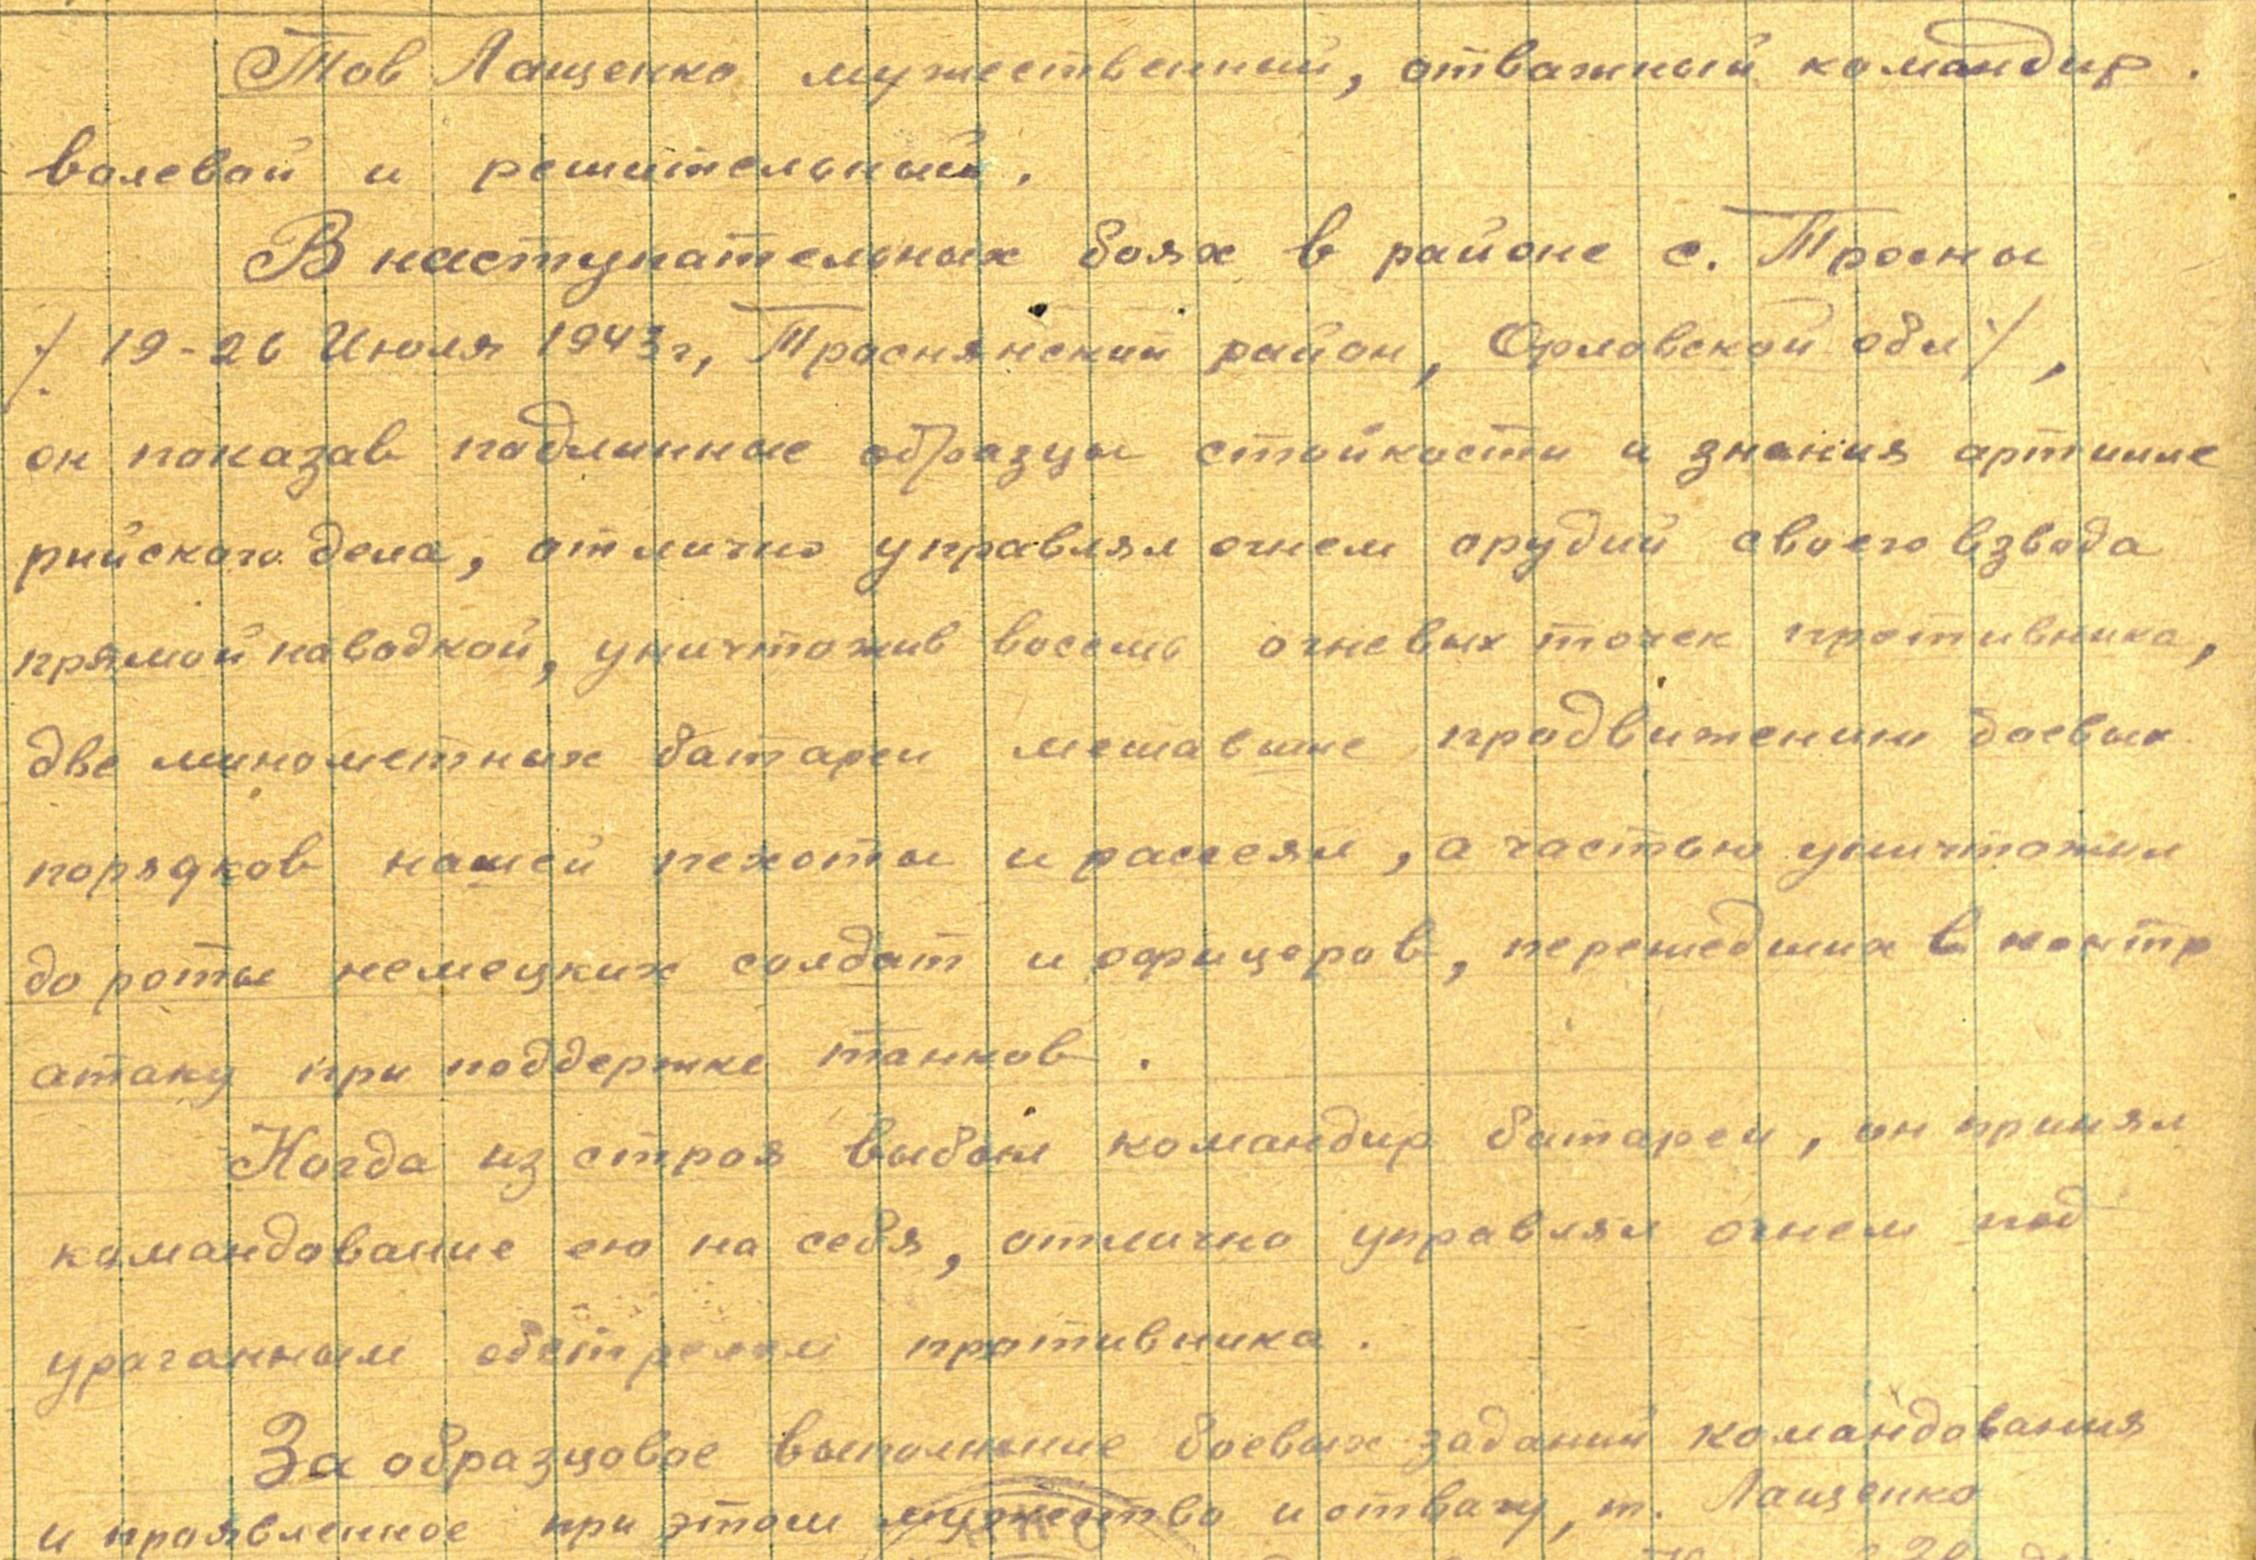 Тов Лащенко мужественный, отважный командир.
волевой и решительный.
В наступательных боях в районе с. Тросны
/. 19-26 Июля 1943 г, Троснянский район, Орловской обл./,
он показав подлинные образцы стойкости и знания артилле
рийского дела, отлично управлял огнем орудий своего взвода
прямой наводкой, уничтожив восемь огневых точек противника,
две минометных батареи мешавшие продвижению боевых
порядков нашей пехоты и рассеял, а частью уничтожил
до роты немецких солдат и офицеров, перешедших в контр
атаку при поддержке танков.
Когда из строя выбыл командир батареи, он принял
командование ею на себя, отлично управлял огнем под
ураганным обстрелом противника.
За образцовое выполнение боевых заданий командования
и проявленное при этом мужество и отвагу, т. Лащенко